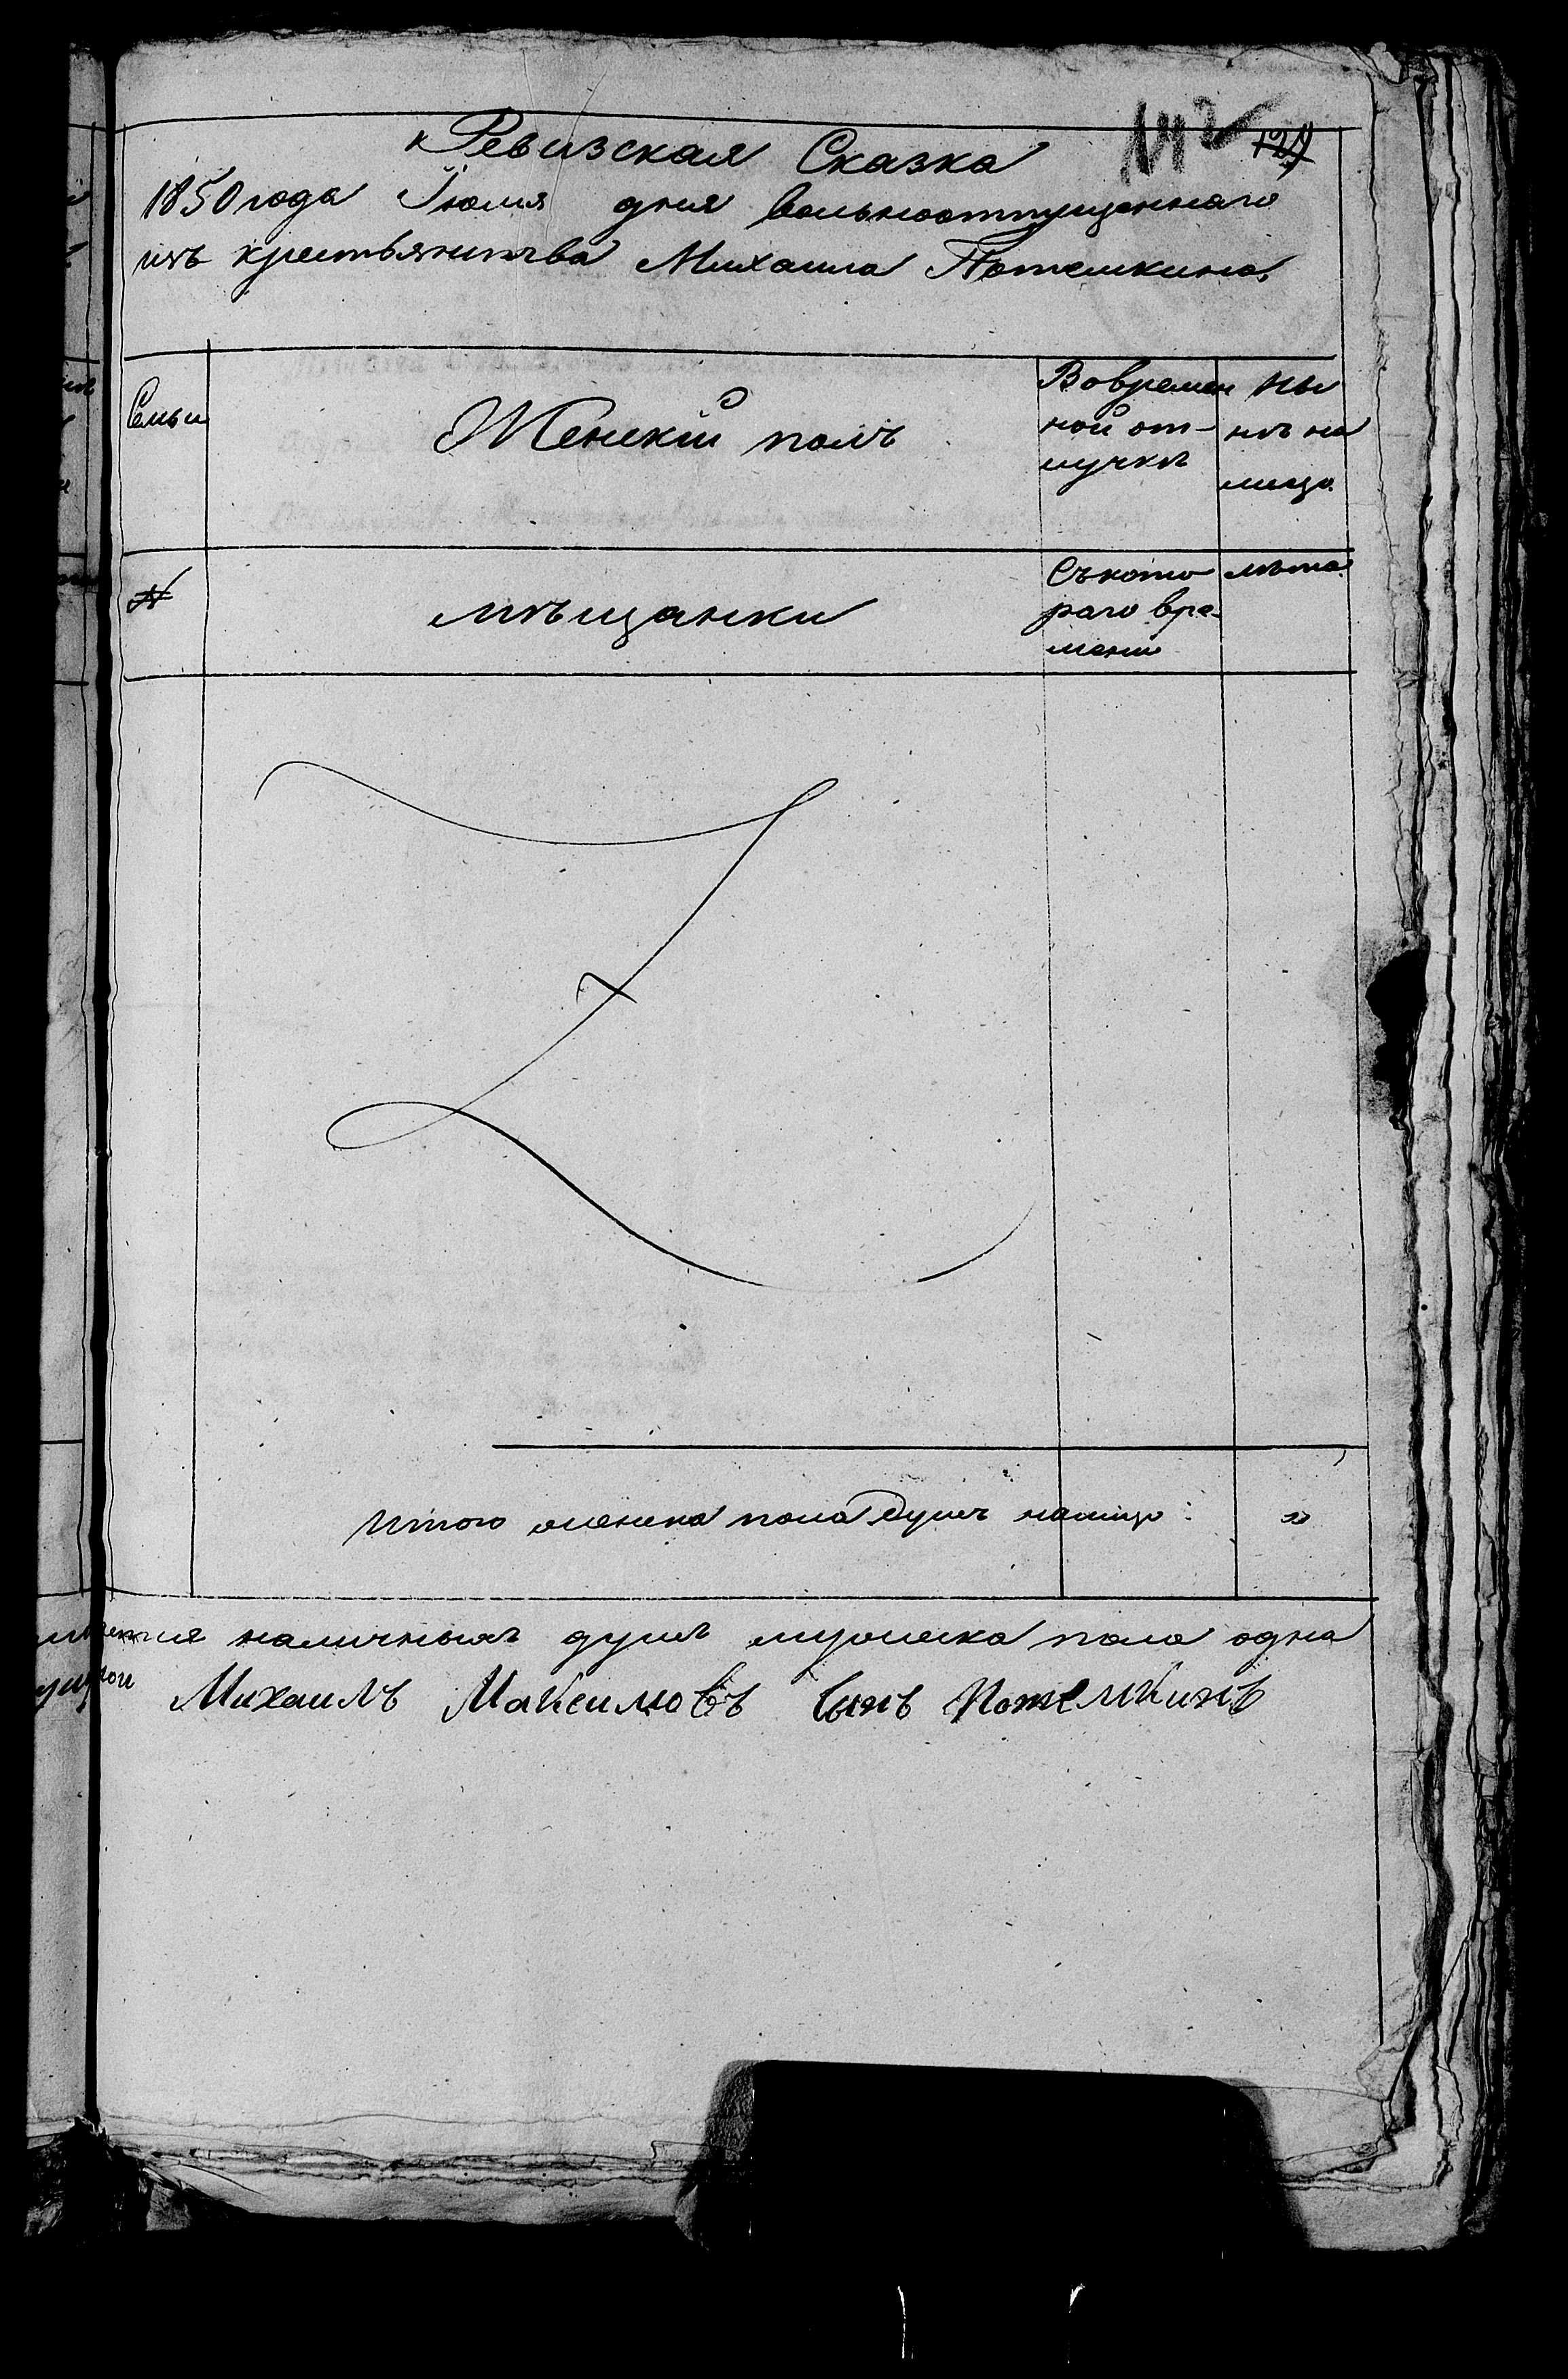 Ревизская Сказка
142
121
1850 года Іюля дня вольноотпущеннаго
изъ крестьянства Михаила Потемкина,
Семьи
Женскій полъ
Вовремен
ной от-
лучкѣ
Ны
нѣ на
лицо
№
мѣщанки
Съкото
раго вре-
мени
лѣта
Итого женска пола душъ налицо:
"
наличныхъ душъ мужеска пола одна
Михаилъ Максимовъ Сынъ Потемкинъ